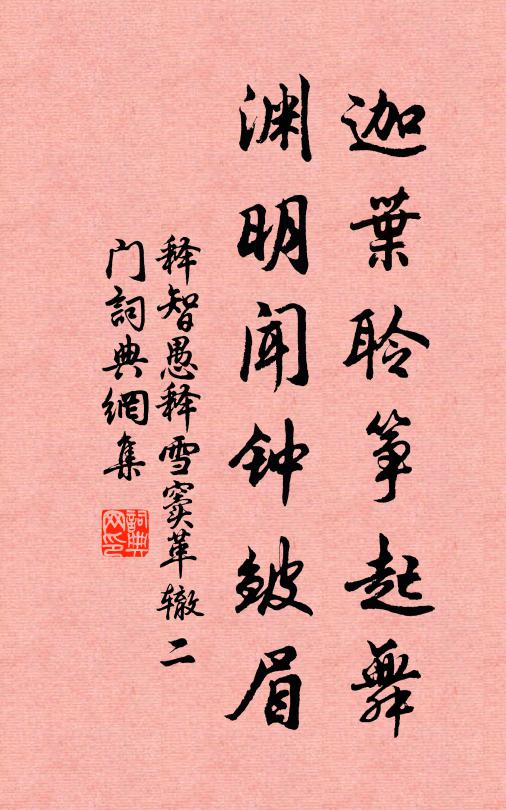 迦葉聆筝起舞
渊明闻钟皱眉
释智愚释雪窦革辙二
门詞典網集
詞典
网印